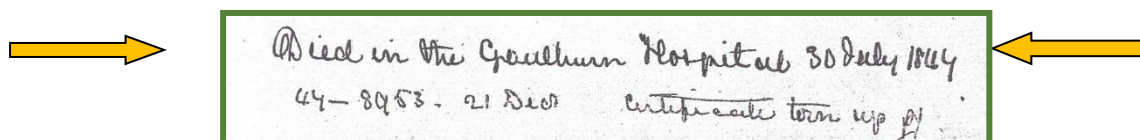 Died in the Goulburn Hospital 30 July 1844
44-8953. 21 Decr certificate torn up